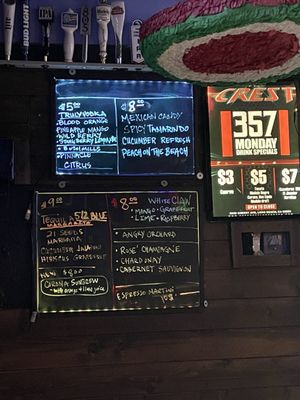 BUD LIGHT
IPA
$5.00
TRULY VODKA
BLOOD ORANGE
PINEAPPLE MANGO
WILD BERRY
STRAWBERRY LEMONADE
BUSHMILLS
PINNACLE
CITRUS
$8.00
MEXICAN CANDY
SPICY TAMARINDO
CUCUMBER REFRESH
PEACH ON THE BEACH
CREST
357
MONDAY
DRINK SPECIALS
$3
$5
$7
OPEN TO CLOSE
$9.00
TEQUILA 512 BLUE
21 SEEDS
MARGARITA
CUCUMBER JALAPENO
HIBISCUS GRAPEFRUIT
NEW $9.00
CORONA SUNBREW
$8.00 WHITE CLAW
MANGO GRAPEFRUIT
LIME RASPBERRY
ANGRY ORCHARD
ROSE' CHAMPAGNE
CHARDONNAY
CABERNET SAUVIGNON
ESPRESSO MARTINI